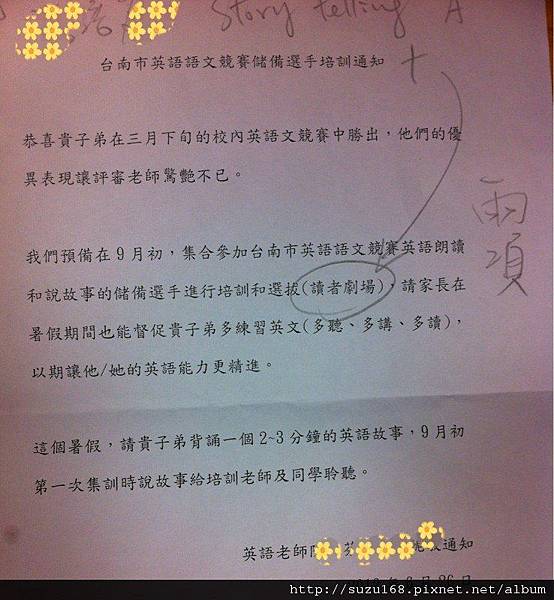 Story telling A
台南市英語語文競賽儲備選手培訓通知
恭喜貴子弟在三月下旬的校內英語文競賽中勝出，他們的優
異表現讓評審老師驚艷不已。
兩項
我們預備在9月初，集合參加台南市英語語文競賽英語朗讀
和說故事的儲備選手進行培訓和選拔(讀者劇場)，請家長在
暑假期間也能督促貴子弟多練習英文(多聽、多講、多讀)，
以期讓他/她的英語能力更精進。
這個暑假，請貴子弟背誦一個2~3分鐘的英語故事，9月初
第一次集訓時說故事給培訓老師及同學聆聽。
英語老師 通知
http://suzu168.pixnet.net/album